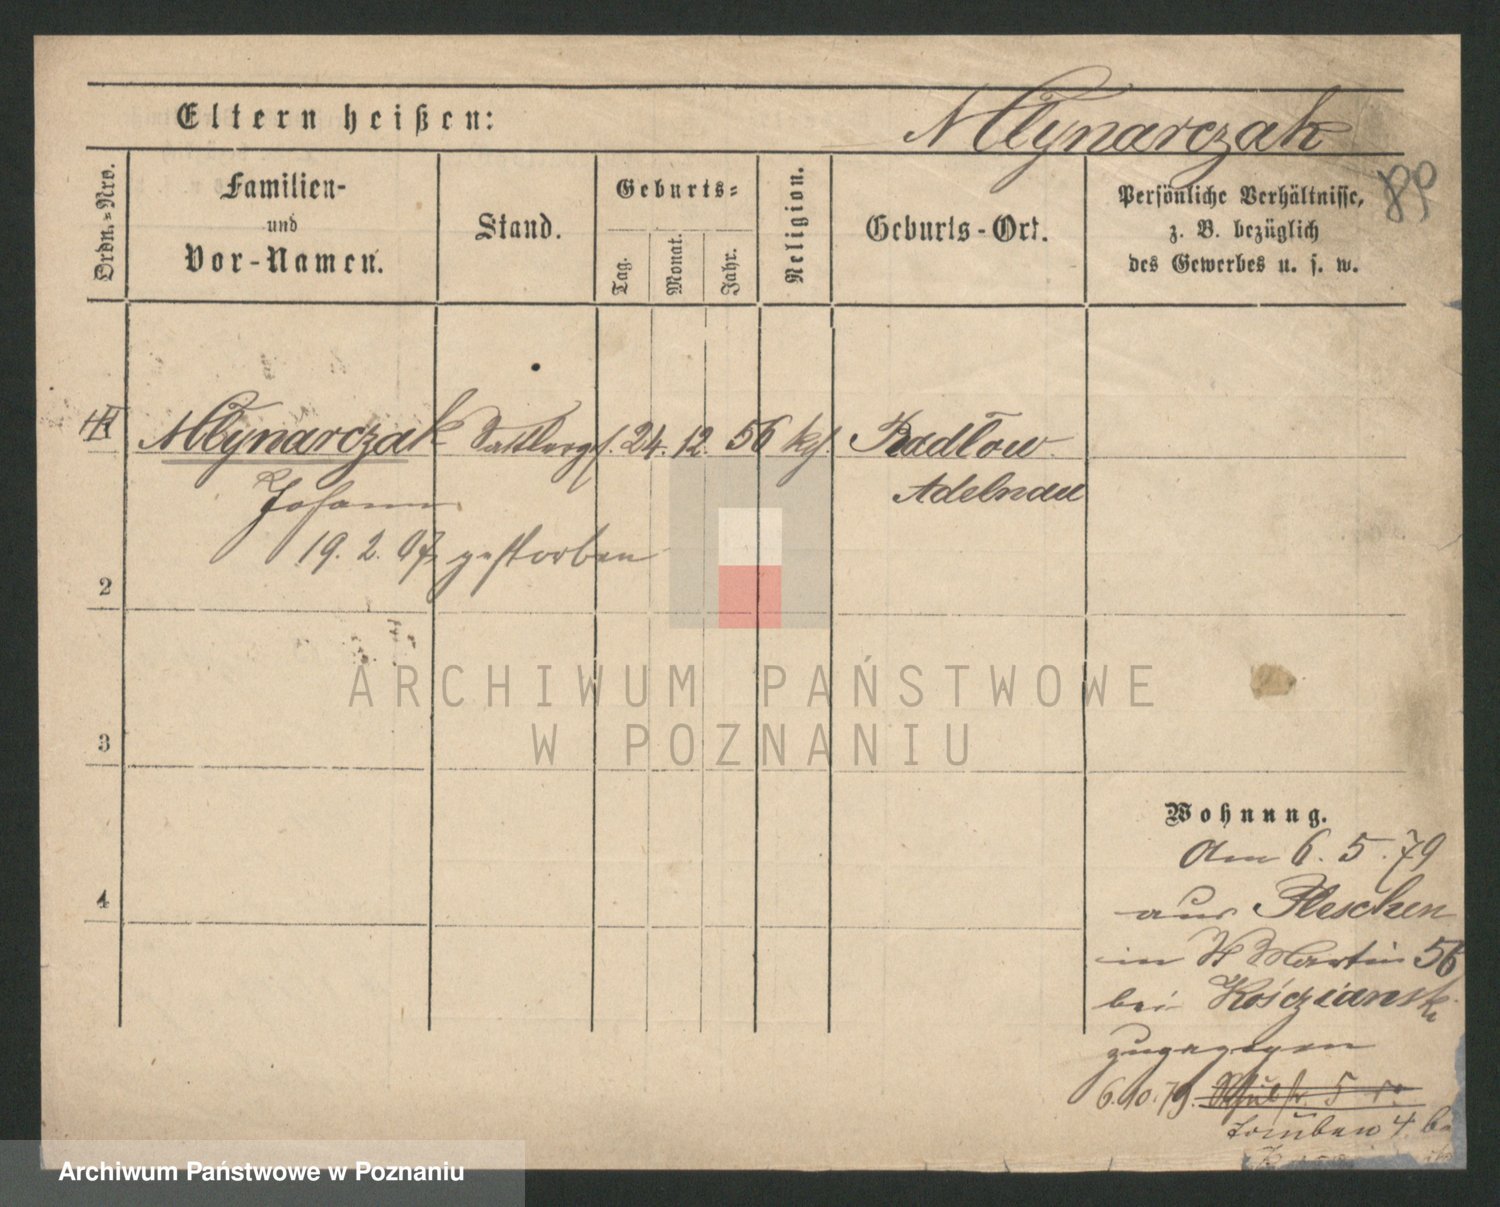 Mlynarczak
Eltern heißen:
89
Ordn.=Nro.
Familien-
und
Vor-Namen.
Stand.
Geburts=
Tag.
Monat.
Jahr.
Religion.
Geburts-Ort.
Persönliche Verhältnisse,
z. B. bezüglich
des Gewerbes u. s. w.
Mlynarczak Sattlerges. 24. 12. 56 kg. Radlow
Johann Adelnau
19. 2. 07. gestorben
2
3
4
Wohnung.
Am 6. 5. 79
aus Pleschen
in St Martin 56
bei
zugezogen
6.10.79. Schulstr. 5
4.
ARCHIWUM PAŃSTWOWE
W POZNANIU
Archiwum Państwowe w Poznaniu